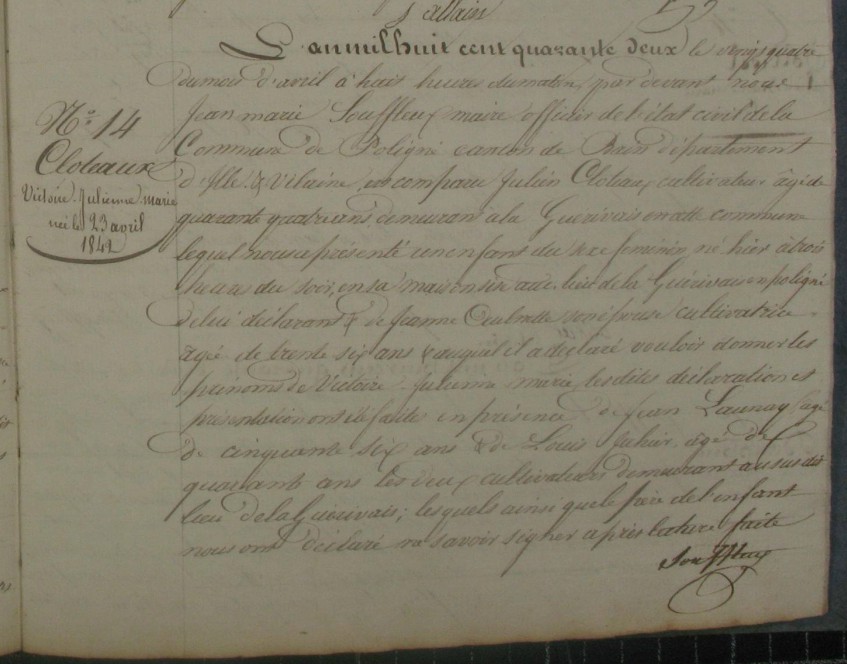 allain
L'an mil huit cent quarante deux le vingt quatre
du mois d'avril à huit heure du matin, par devant nous
Jean marie Souffleux maire officier de l'état civil de la
Commune de Poligné canton de Bain département
d'Ille & Vilaine, est comparu Julien Cloteaux cultivateur âgé de
quarante quatre ans demeurant à la Guérivais en cette commune
lequel nous a présenté un enfant du sexe feminin, né hier à trois
heure du soir, en sa maison sise au lieu de la Guérivais en poligné
de lui déclarant & de Jeanne son épouse cultivatrice
âgé de trente six ans & auquel il a déclaré vouloir donner les
prenoms de Victoire Julienne marie, les dites déclaration et
présentation ont été faites en présence de Jean Launay, âgé
de cinquante six ans & de Louis Jahier, âgé de
quarante ans les deux cultivateurs demeurant au sus dit
lieu de la Guérivais; lesquels ainsi que le père de l'enfant
nous ont déclaré ne savoir signer après lecture faite
Souffleux
N° 14
Cloteaux
Victoire Julienne marie
née le 23 avril
1842